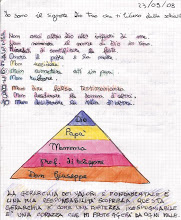 23/09/08
Io sono il Signore Dio Tuo che ti libera dalla schiavitù
Non avrai altro Dio all'infuori di me
Non nominare il nome di Dio in vano
Ricordati di santificare le feste
Onora il padre e la madre
Non uccidere
Non commettere atti impuri
Non rubare
Non dire falsa testimonianza
Non desiderare la donna d'altri
Non desiderare la roba d'altri
Dio
Papà
Mamma
Prof. di religione
Don Giuseppe
LA GERARCHIA DEI VALORI È FONDAMENTALE È
UNA MIA RESPONSABILITÀ SCOPRIRE QUESTA
GERARCHIA
UNA CORAZZA CHE MI PROTEGGE DA OGNI MALE